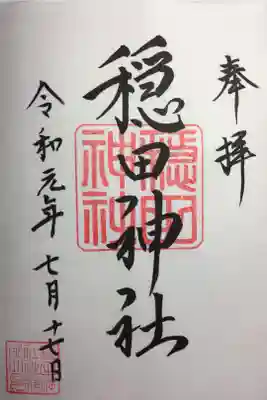 奉拝
穏田神社
穏田
神社
令和元年七月十七日